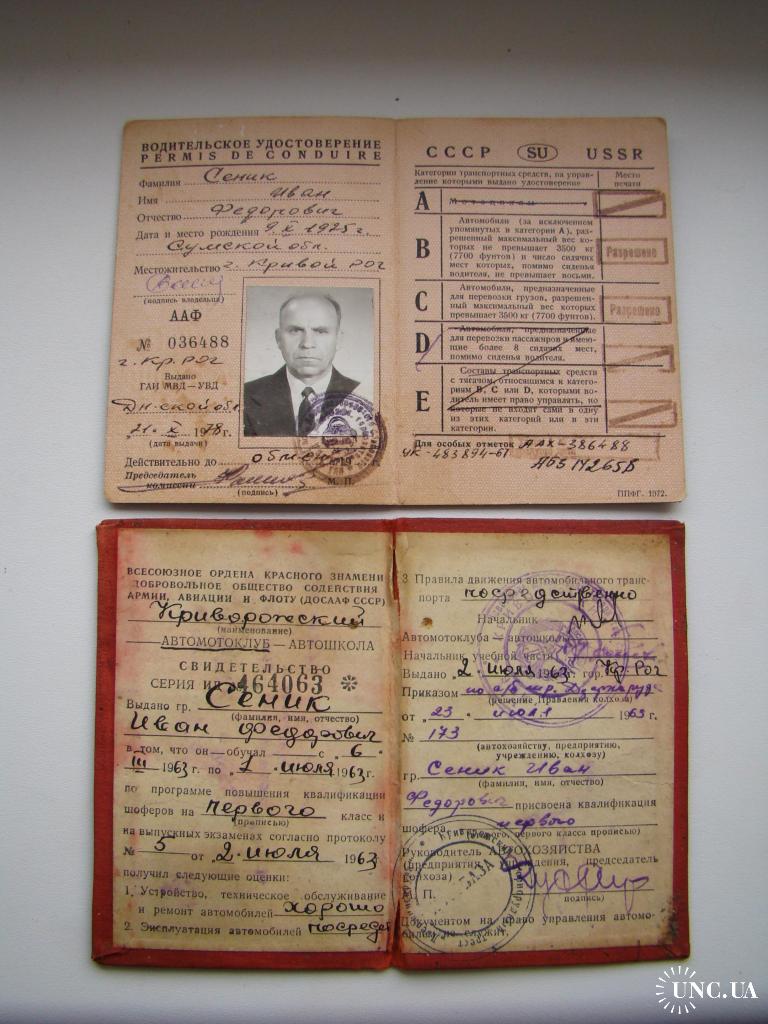 ВОДИТЕЛЬСКОЕ УДОСТОВЕРЕНИЕ
PERMIS DE CONDUIRE
Фамилия Сеник
Имя Иван
Отчество Федорович
Дата и место рождения 9 X 1925 г.
Сумской обл.
Местожительство г. Кривой Рог
(подпись владельца)
ААФ
№ 036488
г. Кр. Рог
Выдано
ГАИ МВД—УВД
Дн-ской обл
21. X 1978 г.
(дата выдачи)
Действительно до обмена
Председатель
комиссии
(подпись)
М. П.
СССР SU USSR
Категории транспортных средств, на управление которыми выдано удостоверение
Место печати
A Мотоциклы
B Автомобили (за исключением
упомянутых в категории А), раз-
решенный максимальный вес ко-
торых не превышает 3500 кг
(7700 фунтов) и число сидячих
мест которых, помимо сиденья
водителя, не превышает восьми.
Разрешено
C Автомобили, предназначенные
для перевозки грузов, разрешен-
ный максимальный вес которых
превышает 3500 кг (7700 фунтов).
Разрешено
D Автомобили, предназначенные
для перевозки пассажиров и имею-
щие более 8 сидячих мест,
помимо сиденья водителя.
E Составы транспортных средств
с тягачом, относящимся к катего-
риям В, С или D, которыми во-
дитель имеет право управлять, но
которые не входят сами в одну
из этих категорий или в эти
категории.
Для особых отметок ААХ-386488
ЧК-483894-61
АБЗ 142658
ППФГ. 1972.
ВСЕСОЮЗНОЕ ОРДЕНА КРАСНОГО ЗНАМЕНИ
ДОБРОВОЛЬНОЕ ОБЩЕСТВО СОДЕЙСТВИЯ
АРМИИ, АВИАЦИИ И ФЛОТУ (ДОСААФ СССР)
Криворожский
(наименование)
АВТОМОТОКЛУБ — АВТОШКОЛА
СВИДЕТЕЛЬСТВО
СЕРИЯ 464063 *
Выдано гр. Сеник
(фамилия, имя, отчество)
Иван Федорович
в том, что он—обучал — с „6“
III 1963 г. по „2“ июля 1963 г.
по программе повышения квалификации
шоферов на первого класс и
(прописью)
на выпускных экзаменах согласно протоколу
№ 5 от 2. июля 1963
получил следующие оценки:
1. Устройство, техническое обслуживание
и ремонт автомобилей хорошо
2. Эксплуатация автомобилей посредст
3 Правила движения автомобильного транс-
порта посредственно
Начальник
Автомотоклуба — автошколы
Начальник учебной части
Выдано „2“ июля 1963 гор. Кр. Рог
Приказом
(решение Правления колхоза)
от „23“ июля 1963 г.
№ 173
(автохозяйству, предприятию,
учреждению, колхозу)
гр. Сеник Иван
(фамилия, имя, отчество)
Федорович присвоена квалификация
шофера первого
первого класса прописью)
Руководитель АВТОХОЗЯЙСТВА
(предприятия, учреждения, председатель
колхоза)
М. П.
подпись
Документом на право управления автомо-
билем не служит.
UNC.UA